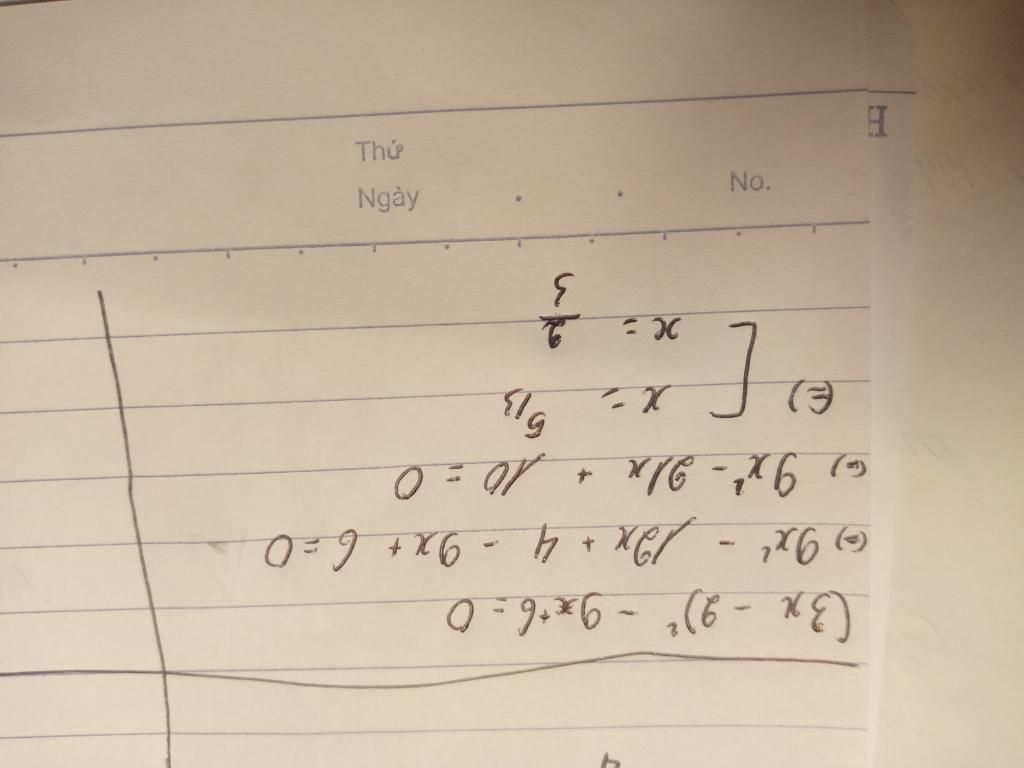 Thứ
Ngày . . No.
H
(3x - 2)² - 9x+6=0
(=) 9x² - 12x + 4 - 9x + 6 = 0
(=) 9x² - 21x + 10 = 0
(=) [ x = 5/3
x = 2/3
4